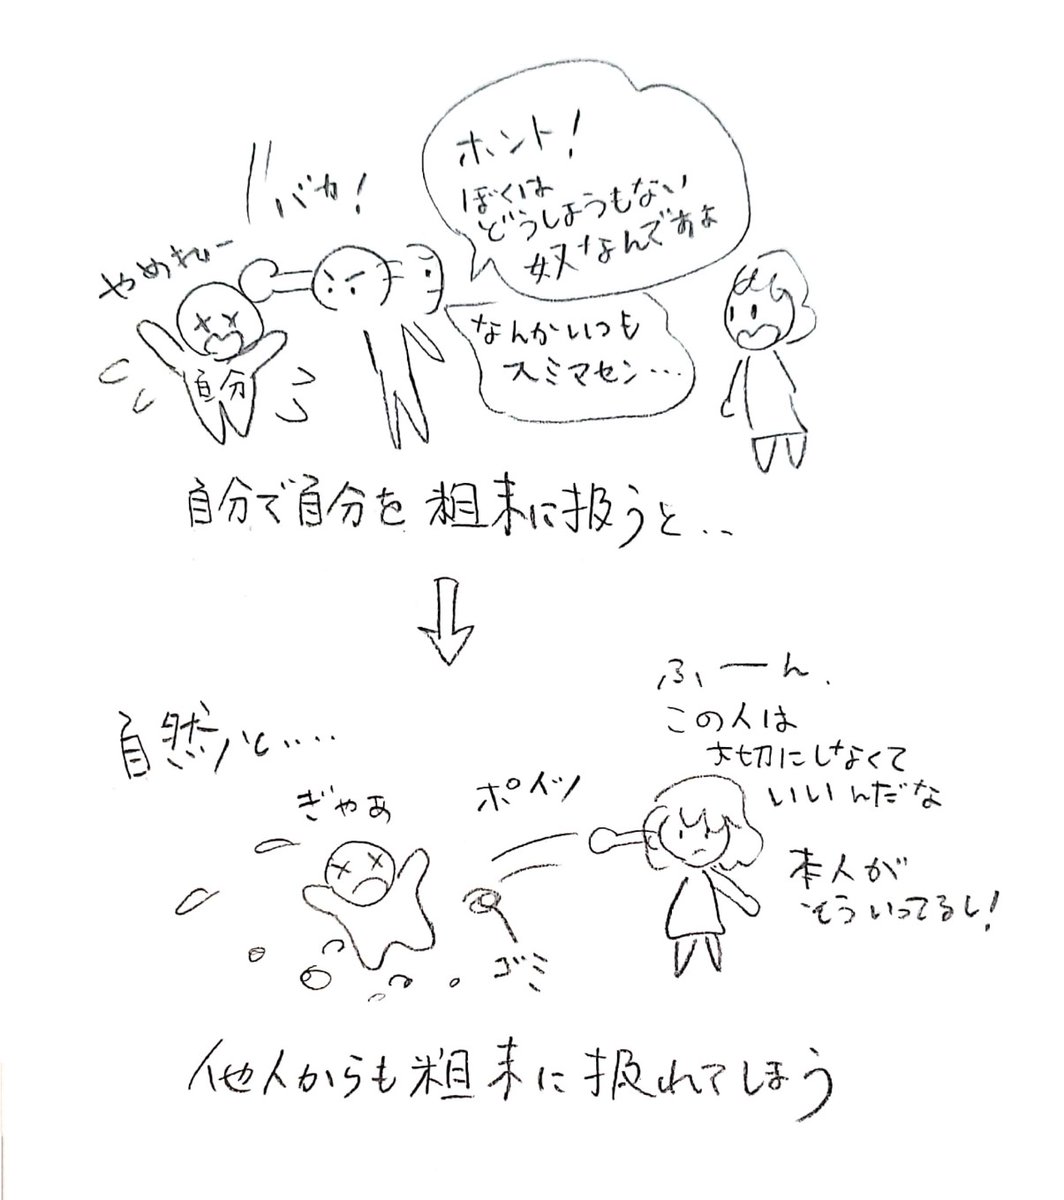 バカ!
ホント!
ぼくは
どうしようもない
奴なんですよ
なんかいつも
スミマセン…
自分
自分で自分を粗末に扱うと..
自然と.....
ふーん.
この人は
大切にしなくて
いいんだな
本人が
そういってるし!
ぎゃあ
ポイッ
ゴミ
他人からも粗末に扱れてしまう